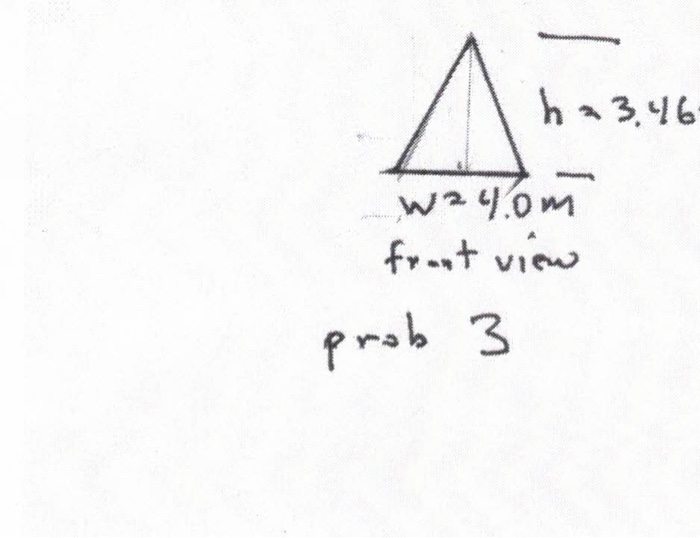 h = 3.46
w = 4.0 m
front view
prob 3